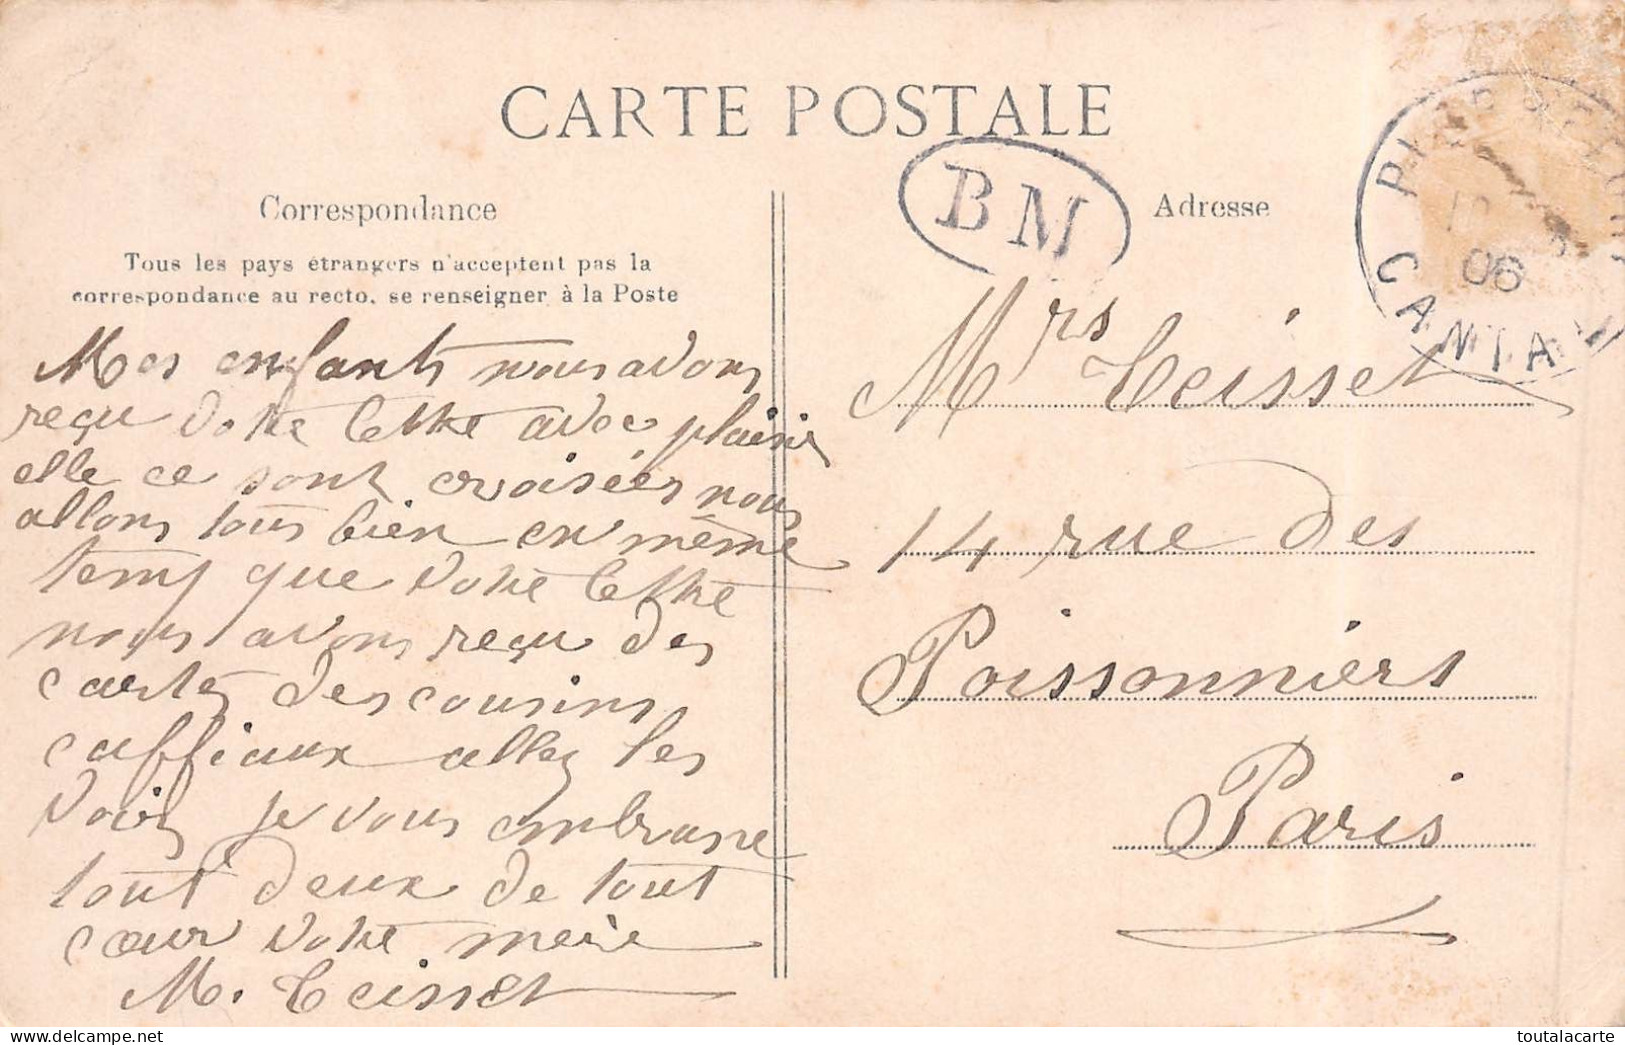 CARTE POSTALE
BM
Correspondance
Adresse
Tous les pays étrangers n'acceptent pas la
correspondance au recto, se renseigner à la Poste
06
CANTAL
Mes enfants nous avons
reçu votre lettre avec plaisir
elle ce sont croisées nous
allons tous bien en même
temp que votre lettre
nous avons reçu des
cartes des cousins
caffiaux allez les
voir je vous embrasse
tout deux de tout
cœur votre mère
M. Teisset
Mrs Teisset
14 rue des
Poissonniers
Paris
toutalacarte